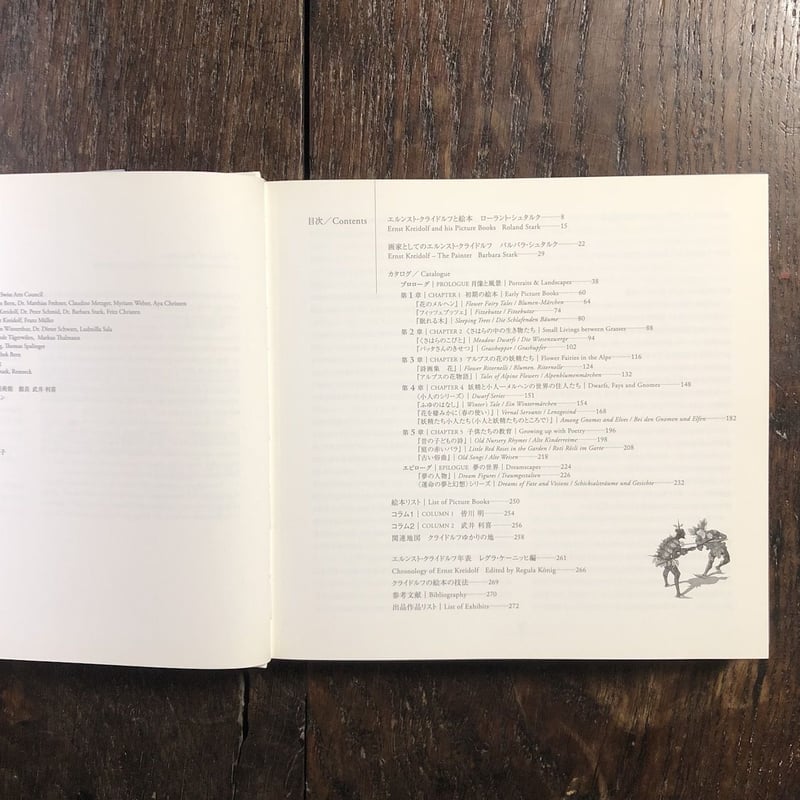 Swiss Arts Council
Bern, Dr. Matthias Frehner, Claudine Metzger, Myriam Weber, Aya Christen
Kreidolf, Dr. Peter Schmid, Dr. Barbara Stark, Fritz Christen
Kreidolf, Franz Müller
Dr. Dieter Schwarz, Ludmilla Sala
Tägerwilen, Markus Thalmann
Thomas Spalinger
Bern
Stark, Renneck
美術館 館長 武井 利喜
ン
子
目次／Contents
エルンスト・クライドルフと絵本 ローラント・シュタルク——8
Ernst Kreidolf and his Picture Books Roland Stark——15
画家としてのエルンスト・クライドルフ バルバラ・シュタルク——22
Ernst Kreidolf – The Painter Barbara Stark——29
カタログ／Catalogue
プロローグ｜PROLOGUE 肖像と風景｜Portraits & Landscapes——38
第1章｜CHAPTER 1 初期の絵本｜Early Picture Books——60
『花のメルヘン』｜Flower Fairy Tales / Blumen-Märchen——64
『フィッツェブッツェ』｜Fitzebutze / Fitzebutze——74
『眠れる木』｜Sleeping Trees / Die Schlafenden Bäume——80
第2章｜CHAPTER 2 くさはらの中の生き物たち｜Small Livings between Grasses——88
『くさはらのこびと』｜Meadow Dwarfs / Die Wiesenzwerge——94
『バッタさんのきせつ』｜Grasshopper / Grashupfer——102
第3章｜CHAPTER 3 アルプスの花の妖精たち｜Flower Fairies in the Alpe——116
『詩画集 花』｜Flower Ritornelli / Blumen, Ritornelle——124
『アルプスの花物語』｜Tales of Alpine Flowers / Alpenblumenmärchen——132
第4章｜CHAPTER 4 妖精と小人—メルヘンの世界の住人たち｜Dwarfs, Fays and Gnomes——148
〈小人のシリーズ〉｜Dwarf Series——151
『ふゆのはなし』｜Winter's Tale / Ein Wintermärchen——154
『花を棲みかに（春の使い）』｜Vernal Servants / Lenzgesind——168
『妖精たち小人たち（小人と妖精たちのところで）』｜Among Gnomes and Elves / Bei den Gnomen und Elfen——182
第5章｜CHAPTER 5 子供たちの教育｜Growing up with Poetry——196
『昔の子どもの詩』｜Old Nursery Rhymes / Alte Kinderreime——198
『庭の赤いバラ』｜Little Red Roses in the Garden / Roti Rösli im Garte——208
『古い俗曲』｜Old Songs / Alte Weisen——218
エピローグ｜EPILOGUE 夢の世界｜Dreamscapes——224
『夢の人物』｜Dream Figures / Traumgestalten——226
〈運命の夢と幻想〉シリーズ｜Dreams of Fate and Visions / Schicksalsträume und Gesichte——232
絵本リスト｜List of Picture Books——250
コラム1｜COLUMN 1 皆川 明——254
コラム2｜COLUMN 2 武井 利喜——256
関連地図 クライドルフゆかりの地——258
エルンスト・クライドルフ年表 レグラ・ケーニッヒ編——261
Chronology of Ernst Kreidolf Edited by Regula König——266
クライドルフの絵本の技法——269
参考文献｜Bibliography——270
出品作品リスト｜List of Exhibits——272